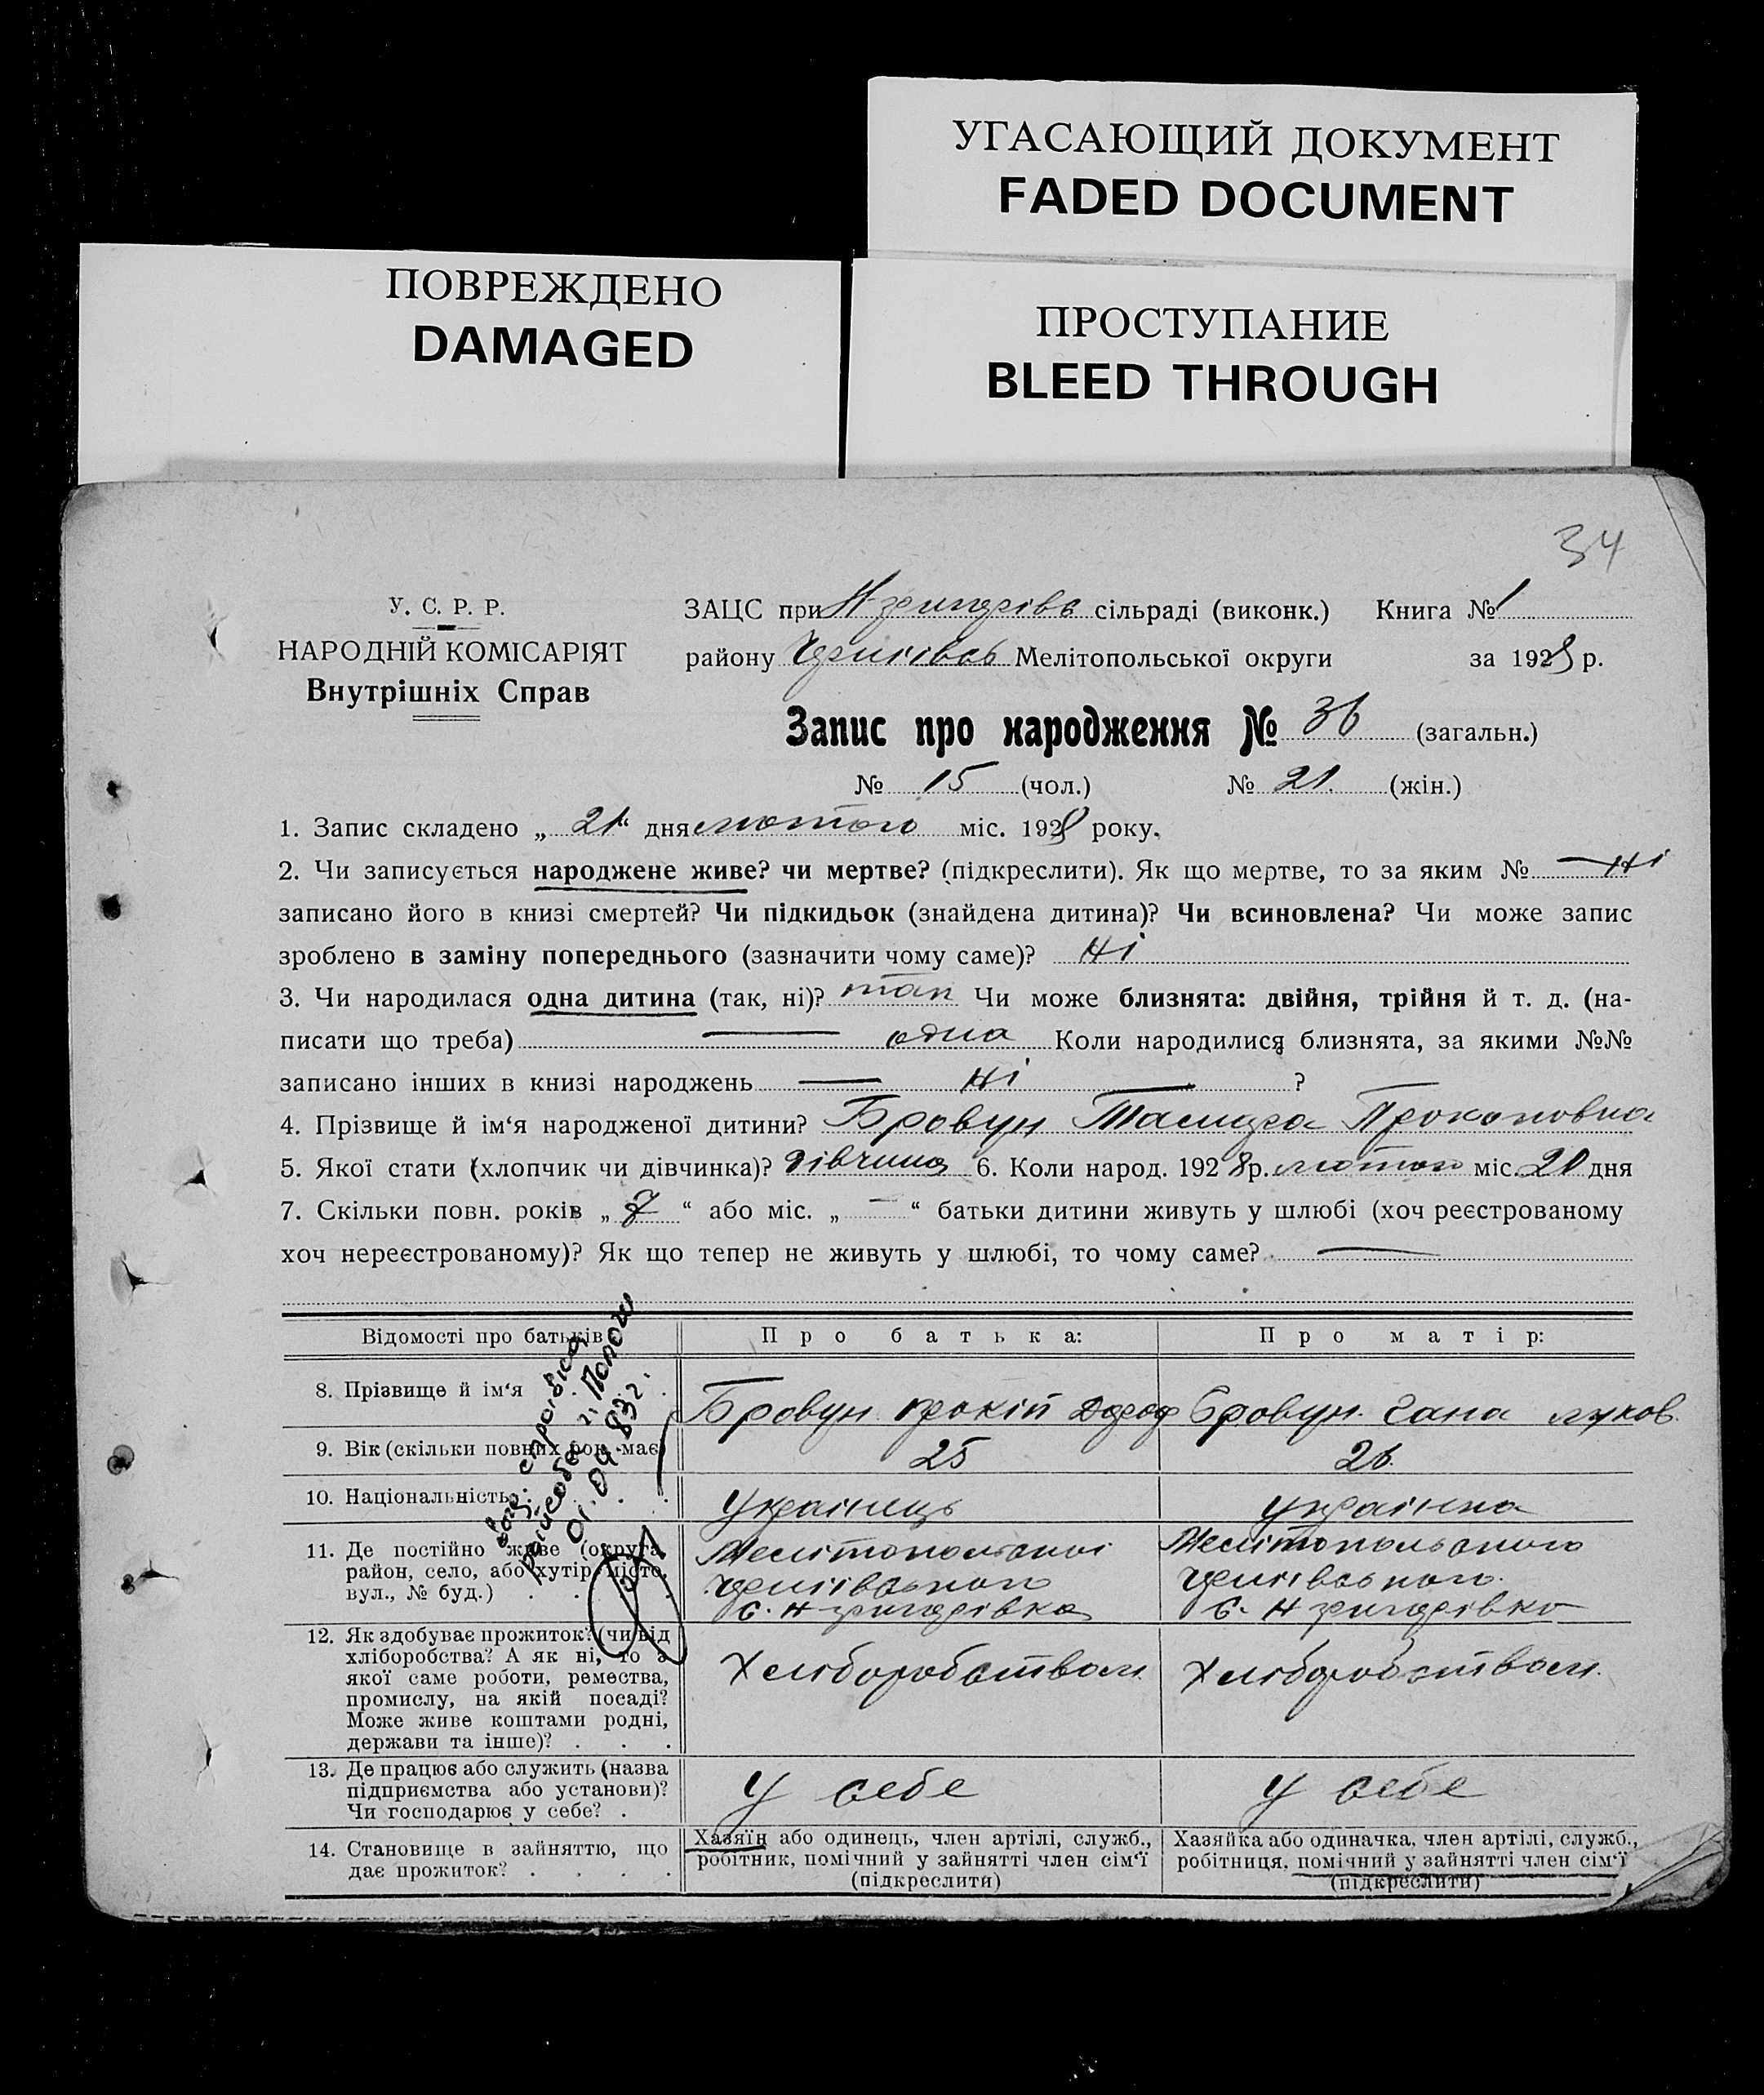 УГАСАЮЩИЙ ДОКУМЕНТ
FADED DOCUMENT
ПОВРЕЖДЕНО
DAMAGED
ПРОСТУПАНИЕ
BLEED THROUGH
34
У. С. Р. Р.
НАРОДНІЙ КОМІСАРІЯТ
Внутрішніх Справ
ЗАЦС при Н-григорівс сільраді (виконк.) Книга № 1
району Чернігівсь Мелітопольської округи за 1928 р.
Запис про народження № 36 (загальн.)
№ 15 (чол.) № 21. (жін.)
1. Запис складено „ 21 “ дня лютого міс. 1928 року.
2. Чи записується народжене живе? чи мертве? (підкреслити). Як що мертве, то за яким № — ні
записано його в книзі смертей? Чи підкидьок (знайдена дитина)? Чи всиновлена? Чи може запис
зроблено в заміну попереднього (зазначити чому саме)? ні
3. Чи народилася одна дитина (так, ні)? так Чи може близнята: двійня, трійня й т. д. (на-
писати що треба) — одна Коли народилися близнята, за якими №№
записано інших в книзі народжень — ні — ?
4. Прізвище й ім‘я народженої дитини? Бровун Тамара Прокоповна
5. Якої стати (хлопчик чи дівчинка)? дівчина 6. Коли народ. 1928 р. лютого міс. 20 дня
7. Скільки повн. років „ 7 “ або міс. „ — “ батьки дитини живуть у шлюбі (хоч реєстрованому
хоч нереєстрованому)? Як що тепер не живуть у шлюбі, то чому саме? —
Відомості про батьків
Про батька:
Про матір:
8. Прізвище й ім‘я
Бровун прокій
Бровун. Гана луков.
9. Вік (скільки повних рок. має)
25
26
10. Національність
Українець
українка
11. Де постійно живе (округа,
район, село, або хутір, місто,
вул., № буд.)
Мелітопольської
Чернігівського
с. Н григорівка
Мелітопольського
Чернігівського.
с. Н григорівка
12. Як здобуває прожиток? (чи від
хліборобства? А як ні, то з
якої саме роботи, ремества,
промислу, на якій посаді?
Може живе коштами родні,
держави та інше)?
Хліборобством
Хліборобством.
13. Де працює або служить (назва
підприємства або установи)?
Чи господарює у себе?
У себе
У себе
14. Становище в зайняттю, що
дає прожиток?
Хазяїн або одинець, член артілі, служб.,
робітник, помічний у зайнятті член сім‘ї
(підкреслити)
Хазяйка або одиначка, член артілі, служб.,
робітниця, помічний у зайнятті член сім‘ї
(підкреслити)
01.09.83г.